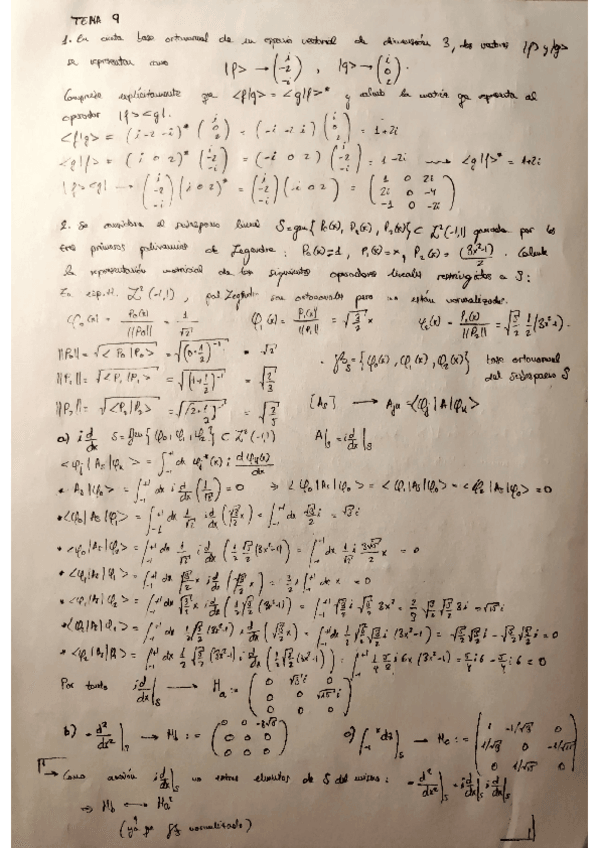 TEMA 9
1. En cierta base ortonormal de un espacio vectorial de dimensión 3, los vectores |f> y |g>
se representan como |f> → (i -2 -i), |g> → (i 0 2).
Compruebe explícitamente que <f|g> = <g|f>* y calcule la matriz que representa al
operador |f><g|.
<f|g> = (i -2 -i)* (i 0 2) = (-i -2 i) (i 0 2) = 1+2i
<g|f> = (i 0 2)* (i -2 -i) = (-i 0 2) (i -2 -i) = 1-2i → <g|f>* = 1+2i
|f><g| → (i -2 -i) (i 0 2)* = (i -2 -i) (-i 0 2) = (1 0 2i 2i 0 -4 -1 0 -2i)
2. Se considera el subespacio lineal S=gen{P₀(x), P₁(x), P₂(x)} ⊂ L²(-1,1) generado por los
tres primeros polinomios de Legendre: P₀(x)=1, P₁(x)=x, P₂(x) = (3x²-1)/2. Calcule
la representación matricial de los siguientes operadores lineales restringidos a S:
En esp. H. L²(-1,1), pol Legendre son ortogonales pero no están normalizados.
φ₀(x) = P₀(x)/||P₀|| = 1/√2 φ₁(x) = P₁(x)/||P₁|| = √3/2 x φ₂(x) = P₂(x)/||P₂|| = √5/2 1/2 (3x²-1).
||P₀|| = √<P₀|P₀> = √(0+1/2)⁻¹ = √2
||P₁|| = √<P₁|P₁> = √(1+1/2)⁻¹ = √2/3
||P₂|| = √<P₂|P₂> = √(2+1/2)⁻¹ = √2/5
· β_S = {φ₀(x), φ₁(x), φ₂(x)} base ortonormal
del subespacio S
[A_S] → A_jk = <φ_j|A|φ_k>
a) i d/dx S = gen{φ₀, φ₁, φ₂} ⊂ L²(-1,1) A|_S = i d/dx|_S
<φ_j|A_S|φ_k> = ∫₋₁⁺¹ dx φ_j*(x) i dφ_k(x)/dx
· A_S|φ₀> = ∫₋₁⁺¹ dx i d/dx (1/√2) = 0 ⇒ <φ₀|A_S|φ₀> = <φ₁|A_S|φ₀> = <φ₂|A_S|φ₀> = 0
· <φ₀|A_S|φ₁> = ∫₋₁⁺¹ dx 1/√2 i d/dx (√3/2 x) = ∫₋₁⁺¹ dx √3/2 i = √3 i
· <φ₀|A_S|φ₂> = ∫₋₁⁺¹ dx 1/√2 i d/dx (1/2 √5/2 (3x²-1)) = 0
· <φ₁|A_S|φ₁> = ∫₋₁⁺¹ dx √3/2 x i d/dx (√3/2 x) = 0
· <φ₁|A_S|φ₂> = ∫₋₁⁺¹ dx √3/2 x i d/dx (1/2 √5/2 (3x²-1)) = √15 i
· <φ₂|A_S|φ₁> = ∫₋₁⁺¹ dx 1/2 √5/2 (3x²-1) i d/dx (√3/2 x) = 0
· <φ₂|A_S|φ₂> = ∫₋₁⁺¹ dx 1/2 √5/2 (3x²-1) i d/dx (1/2 √5/2 (3x²-1)) = 0
Por tanto i d/dx|_S → M_a := (0 √3 i 0 0 0 √15 i 0 0 0)
b) - d²/dx²|_S → M_b := (0 0 -3√5 0 0 0 0 0 0) c)
→ Como acción i d/dx|_S no extrae elementos de S del mismo: - d²/dx²|_S = i d/dx|_S i d/dx|_S
⇒ M_b ↔ M_a²
(ya que normalizado)